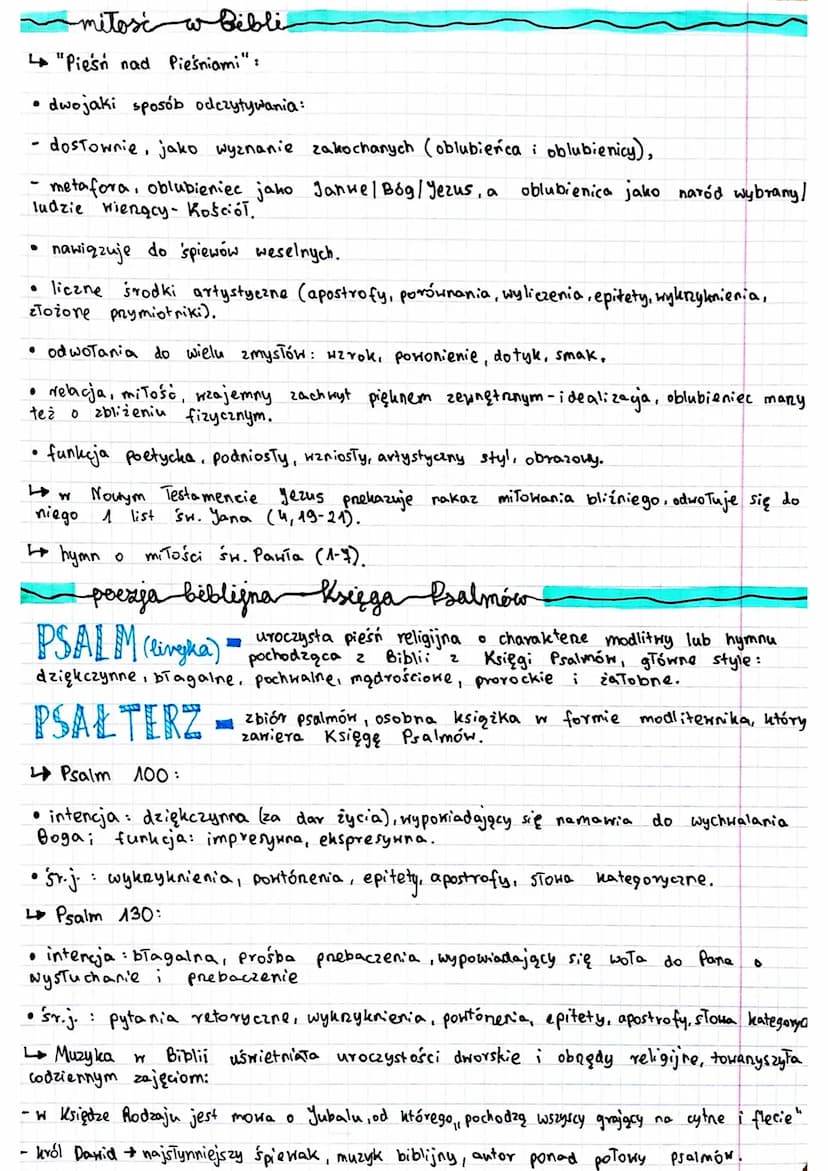 miłość w Bibli
↳ "Pieśń nad Pieśniami":
• dwojaki sposób odczytywania:
- dosłownie, jako wyznanie zakochanych (oblubieńca i oblubienicy),
- metafora, oblubieniec jako Jahwe/Bóg/Jezus, a oblubienica jako naród wybrany/
ludzie wierzący - Kościół.
• nawiązuje do śpiewów weselnych.
• liczne środki artystyczne (apostrofy, porównania, wyliczenia, epitety, wykrzyknienia,
złożone przymiotniki).
• odwołania do wielu zmysłów: wzrok, powonienie, dotyk, smak,
• relacja, miłość, wzajemny zachwyt pięknem zewnętrznym - idealizacja, oblubieniec marzy
też o zbliżeniu fizycznym.
• funkcja poetycka, podniosły, wzniosły, artystyczny styl, obrazowy.
↳ w Nowym Testamencie Jezus przekazuje nakaz miłowania bliźniego, odwołuje się do
niego 1 list św. Jana (4,19-21).
↳ hymn o miłości św. Pawła (1-7).
poezja biblijna Księga Psalmów
PSALM (liryka) = uroczysta pieśń religijna o charakterze modlitwy lub hymnu
pochodząca z Biblii z Księgi Psalmów, główne style:
dziękczynne, błagalne, pochwalne, mądrościowe, prorockie i żałobne.
PSAŁTERZ = zbiór psalmów, osobna książka w formie modlitewnika, który
zawiera Księgę Psalmów.
↳ Psalm 100:
• intencja: dziękczynna (za dar życia), wypowiadający się namawia do wychwalania
Boga; funkcja: impresywna, ekspresywna.
• śr.j. : wykrzyknienia, powtórzenia, epitety, apostrofy, słowa kategoryczne.
↳ Psalm 130:
• intencja: błagalna, prośba przebaczenia, wypowiadający się woła do Pana o
wysłuchanie i przebaczenie
• śr.j. : pytania retoryczne, wykrzyknienia, powtórzenia, epitety, apostrofy, słowa kategory
↳ Muzyka w Biblii uświetniała uroczystości dworskie i obrzędy religijne, towarzyszyła
codziennym zajęciom:
- w Księdze Rodzaju jest mowa o Jubalu, od którego „pochodzą wszyscy grający na cytrze i flecie"
- król Dawid → najsłynniejszy śpiewak, muzyk biblijny, autor ponad połowy psalmów.